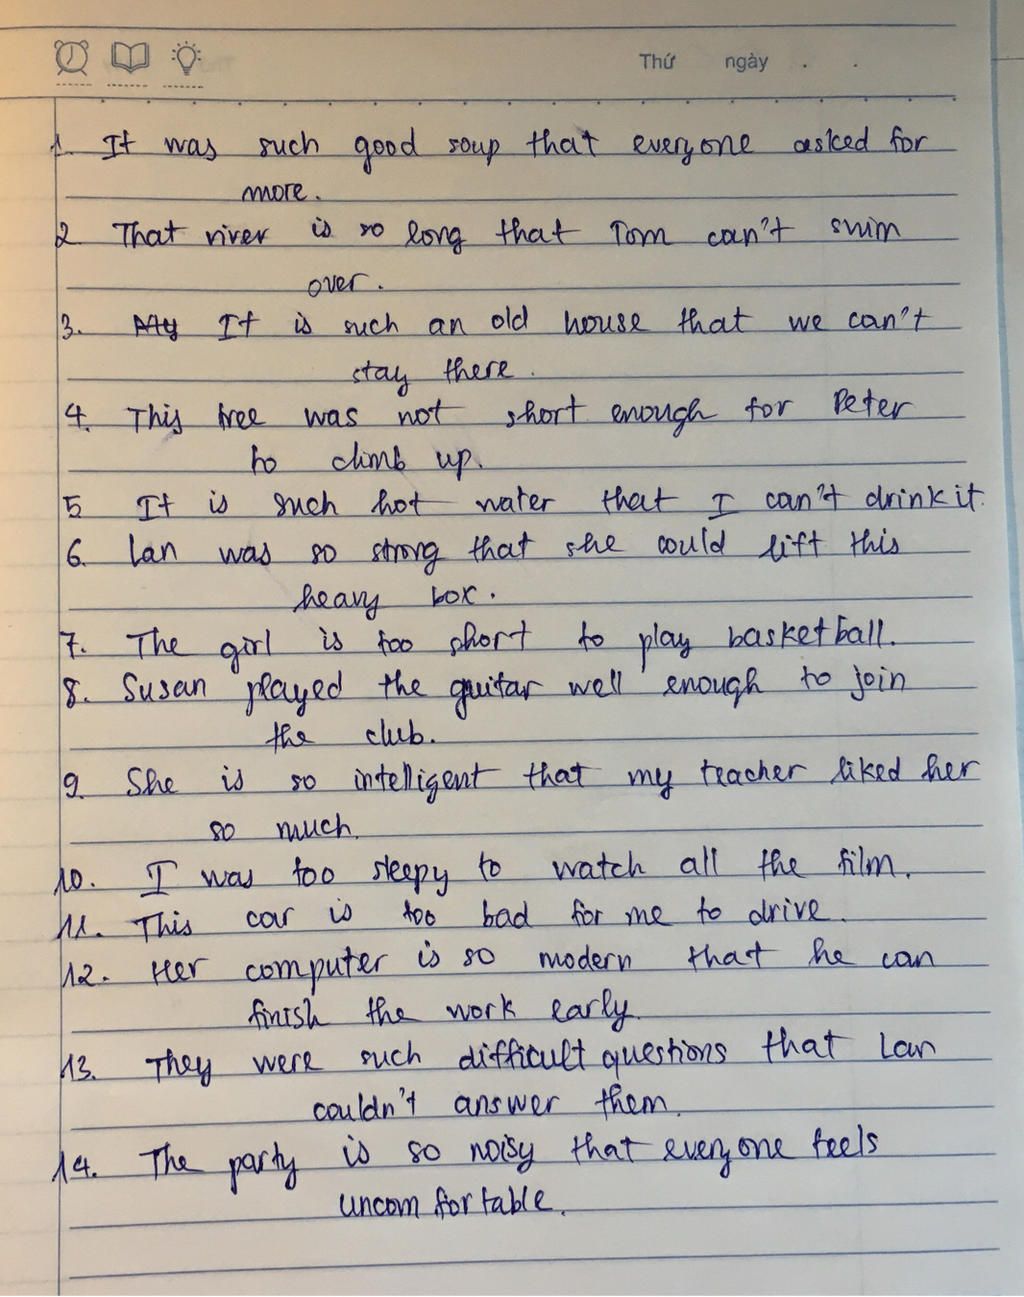 Thứ ngày . .
1. It was such good soup that everyone asked for
more.
2 That river is so long that Tom can't swim
over.
3. My It is such an old house that we can't
stay there.
4. This tree was not short enough for Peter
to climb up.
5 It is such hot water that I can't drink it.
6. Lan was so strong that she could lift this
heavy box.
7. The girl is too short to play basketball.
8. Susan played the guitar well enough to join
the club.
9. She is so intelligent that my teacher liked her
so much.
10. I was too sleepy to watch all the film.
11. This car is too bad for me to drive.
12. Her computer is so modern that he can
finish the work early.
13. They were such difficult questions that Lan
couldn't answer them.
14. The party is so noisy that everyone feels
uncomfortable.